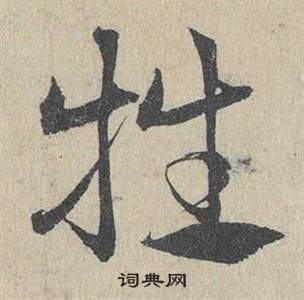 牲
词典网